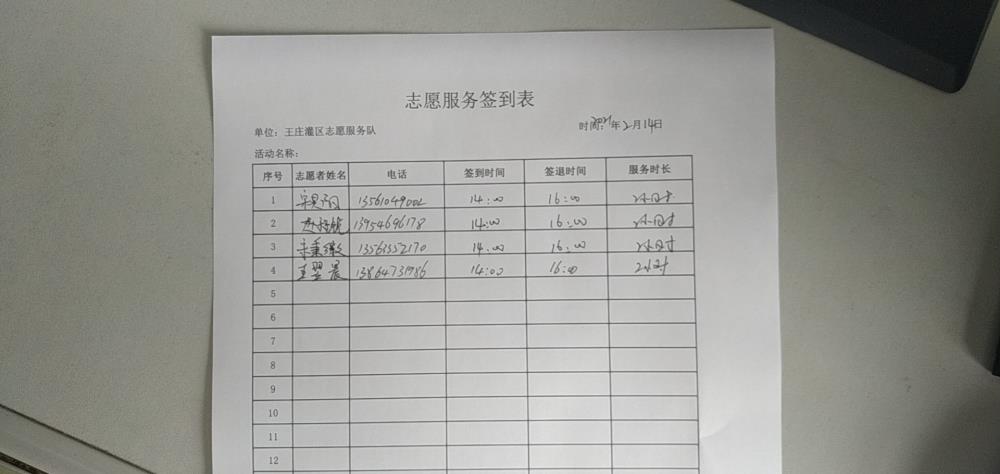 志愿服务签到表
单位：王庄灌区志愿服务队 时间：2021年2月14日
活动名称：
序号 志愿者姓名 电话 签到时间 签退时间 服务时长
1 13561049002 14:00 16:00 2小时
2 13954696178 14:00 16:00 2小时
3 13563552170 14:00 16:00 2小时
4 王翌晨 13864731986 14:00 16:00 2小时
5
6
7
8
9
10
11
12